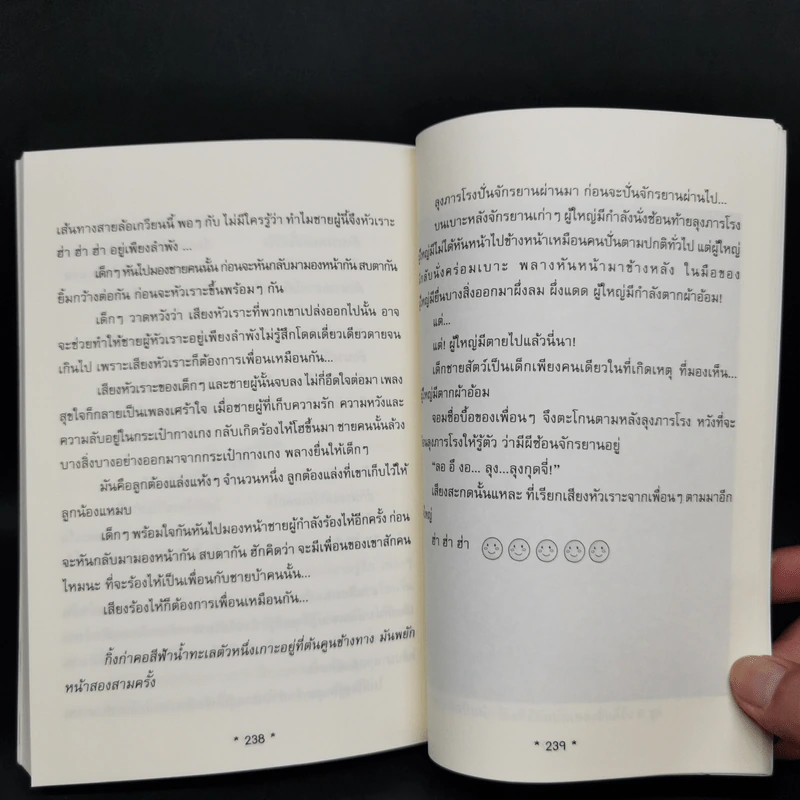 เส้นทางสายล้อเกวียนนี้ พอๆ กับ ไม่มีใครรู้ว่า ทำไมชายผู้นี้จึงหัวเราะ
ฮ่า ฮ่า ฮ่า อยู่เพียงลำพัง ...
เด็กๆ หันไปมองชายคนนั้น ก่อนจะหันกลับมามองหน้ากัน สบตากัน
ยิ้มกว้างต่อกัน ก่อนจะหัวเราะขึ้นพร้อมๆ กัน
เด็กๆ วาดหวังว่า เสียงหัวเราะที่พวกเขาเปล่งออกไปนั้น อาจ
จะช่วยทำให้ชายผู้หัวเราะอยู่เพียงลำพังไม่รู้สึกโดดเดี่ยวเดียวดายจน
เกินไป เพราะเสียงหัวเราะก็ต้องการเพื่อนเหมือนกัน...
เสียงหัวเราะของเด็กๆ และชายผู้นั้นจบลง ไม่กี่อึดใจต่อมา เพลง
สุขใจก็กลายเป็นเพลงเศร้าใจ เมื่อชายผู้ที่เก็บความรัก ความหวังและ
ความลับอยู่ในกระเป๋ากางเกง กลับเกิดร้องไห้โฮขึ้นมา ชายคนนั้นล้วง
บางสิ่งบางอย่างออกมาจากกระเป๋ากางเกง พลางยื่นให้เด็กๆ
มันคือลูกต้องแล่งแห้งๆ จำนวนหนึ่ง ลูกต้องแล่งที่เขาเก็บไว้ให้
ลูกน้องแหมบ
เด็กๆ พร้อมใจกันหันไปมองหน้าชายผู้กำลังร้องไห้อีกครั้ง ก่อน
จะหันกลับมามองหน้ากัน สบตากัน ฮักคิดว่า จะมีเพื่อนของเขาสักคน
ไหมนะ ที่จะร้องไห้เป็นเพื่อนกับชายบ้าคนนั้น...
เสียงร้องไห้ก็ต้องการเพื่อนเหมือนกัน...
กิ้งก่าคอสีฟ้าน้ำทะเลตัวหนึ่งเกาะอยู่ที่ต้นคูนข้างทาง มันพยัก
หน้าสองสามครั้ง
* 238 *
ลุงภารโรงปั่นจักรยานผ่านมา ก่อนจะปั่นจักรยานผ่านไป...
บนเบาะหลังจักรยานเก่าๆ ผู้ใหญ่มีกำลังนั่งซ้อนท้ายลุงภารโรง
ผู้ใหญ่มีไม่ได้หันหน้าไปข้างหน้าเหมือนคนปั่นตามปกติทั่วไป แต่ผู้ใหญ่
มีกลับนั่งคร่อมเบาะ พลางหันหน้ามาข้างหลัง ในมือของ
ผู้ใหญ่มียื่นบางสิ่งออกมาผึ่งลม ผึ่งแดด ผู้ใหญ่มีกำลังตากผ้าอ้อม!
แต่...
แต่! ผู้ใหญ่มีตายไปแล้วนี่นา!
เด็กชายสัตว์เป็นเด็กเพียงคนเดียวในที่เกิดเหตุ ที่มองเห็น...
ผู้ใหญ่มีตากผ้าอ้อม
จอมซื่อบื้อของเพื่อนๆ จึงตะโกนตามหลังลุงภารโรง หวังที่จะ
ลุงภารโรงให้รู้ตัว ว่ามีผีซ้อนจักรยานอยู่
“ลอ อึ งอ... ลุง...ลุงกุดจี่!”
เสียงสะกดนั้นแหละ ที่เรียกเสียงหัวเราะจากเพื่อนๆ ตามมาอีก
ฮ่า ฮ่า ฮ่า
* 239 *